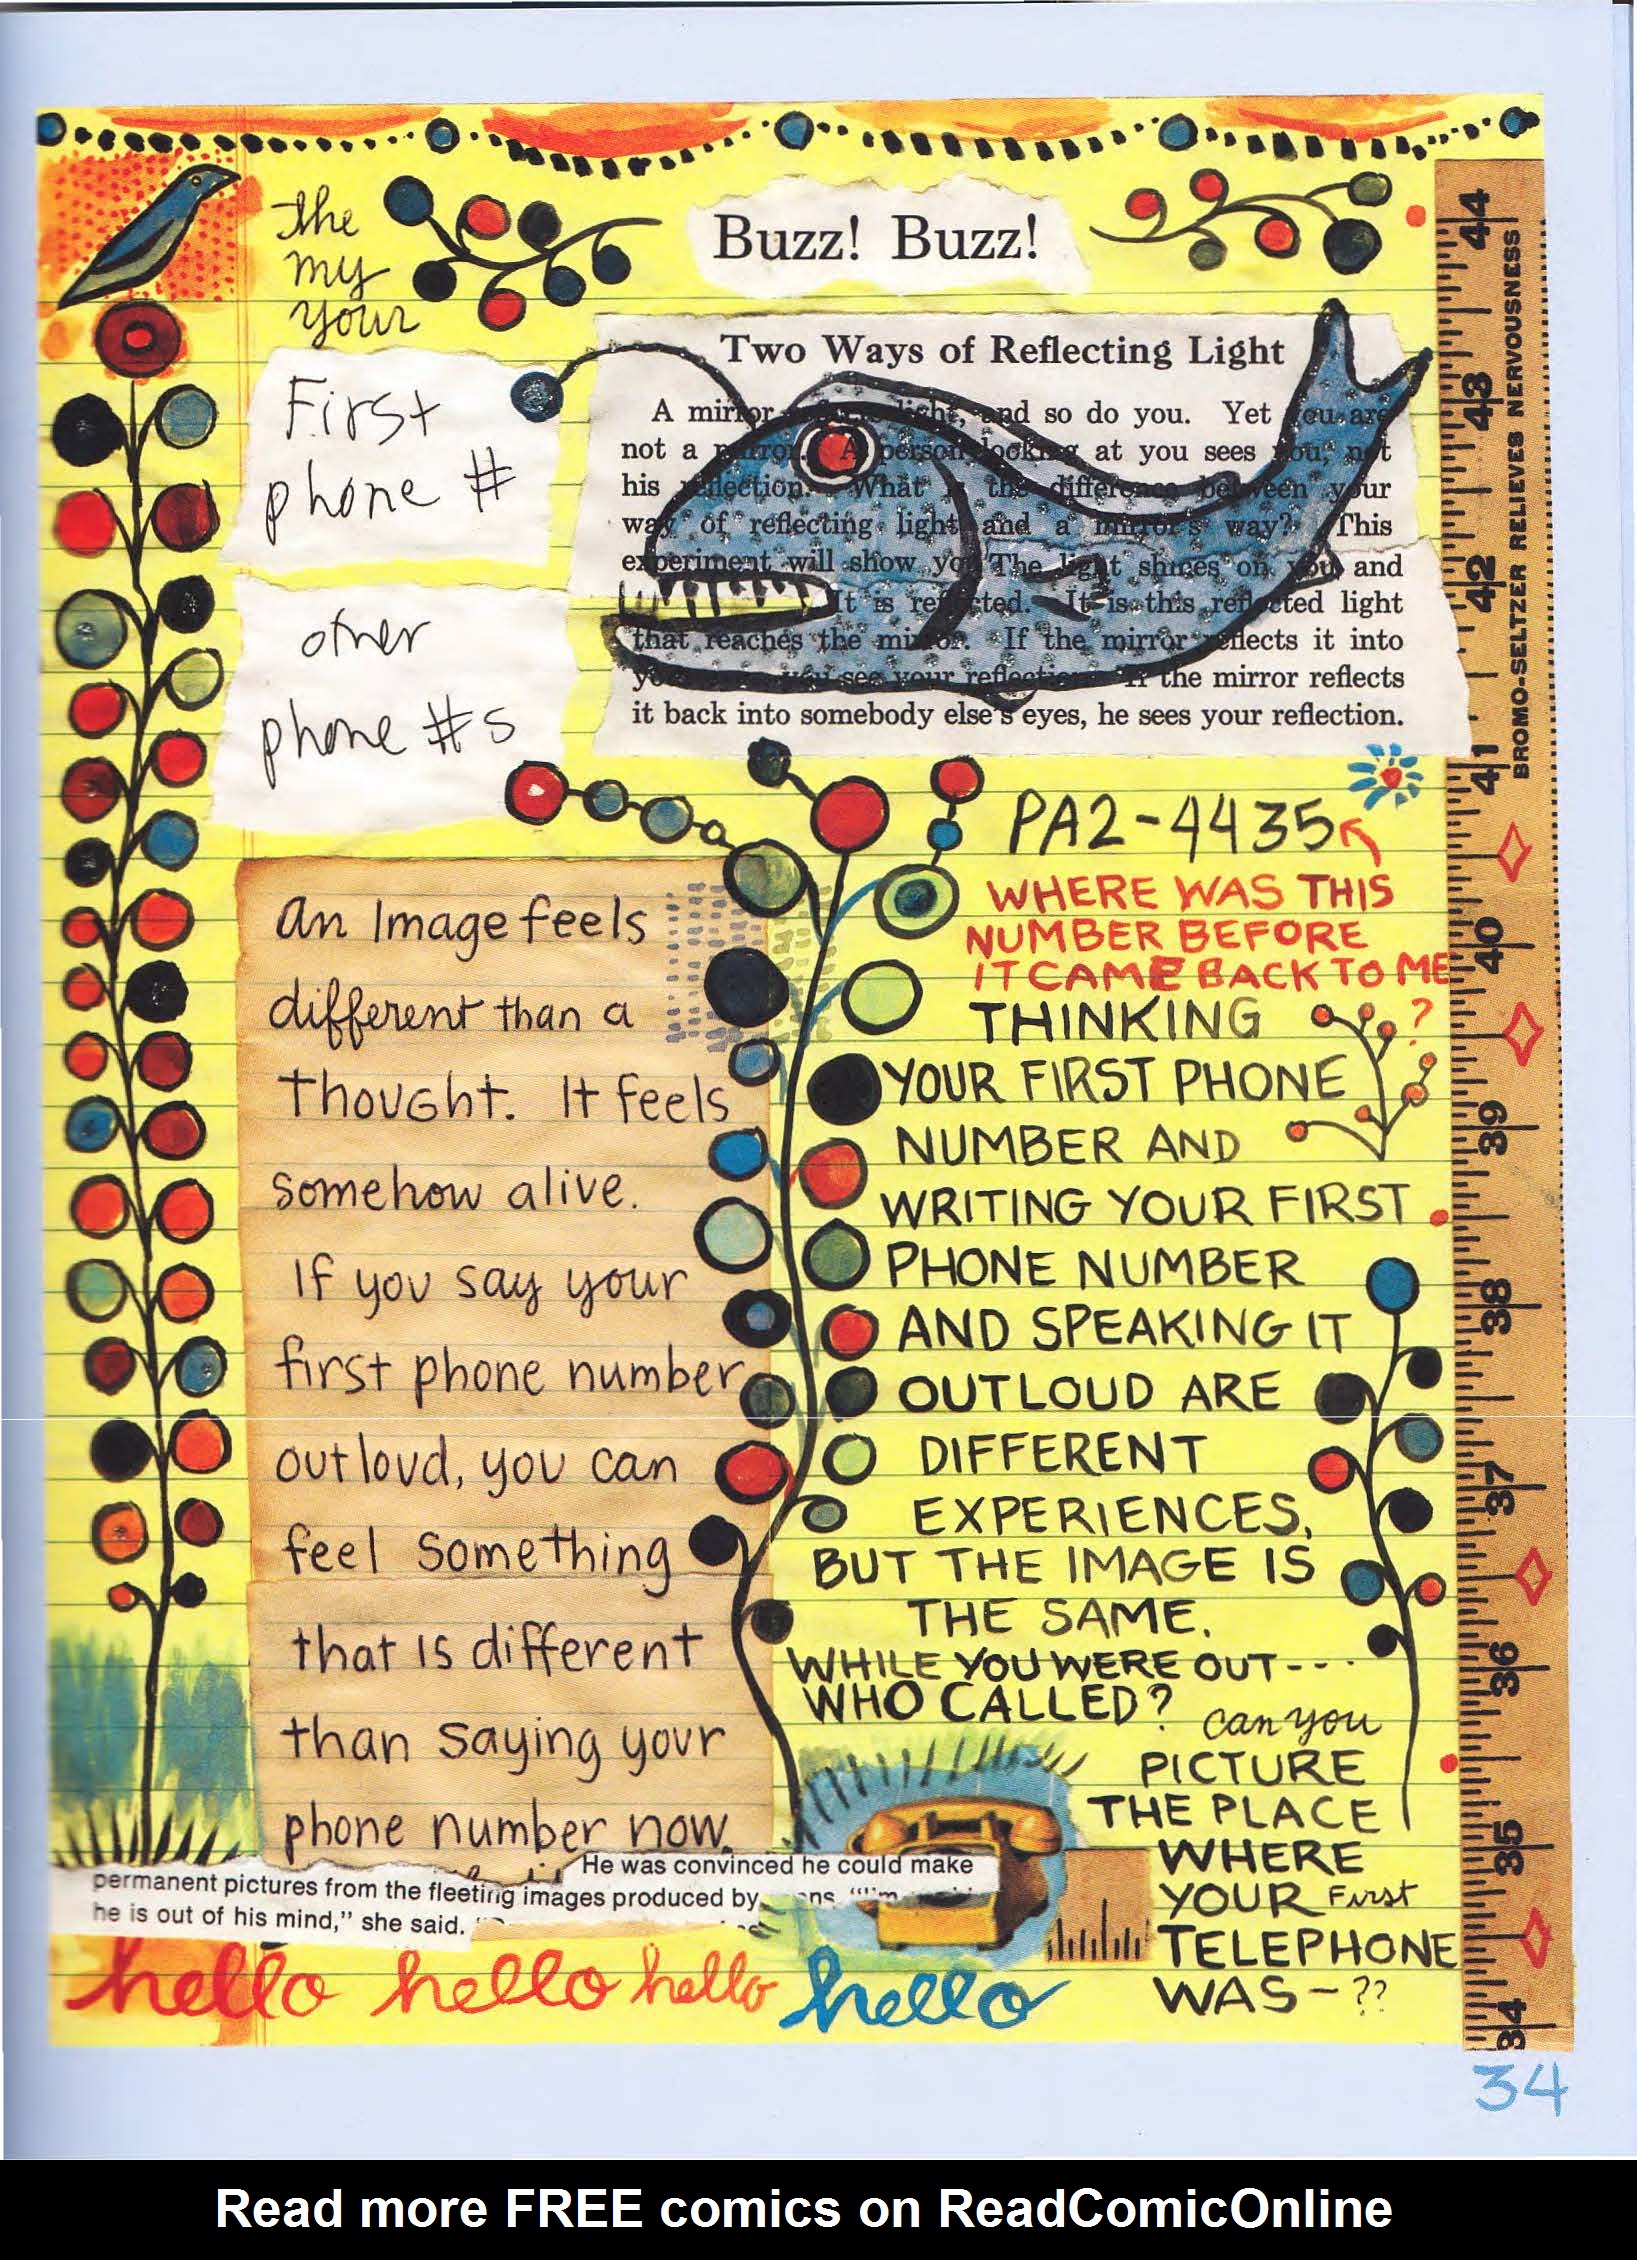 the
my
your
Buzz! Buzz!
First
phone #
other
phone #s
Two Ways of Reflecting Light
A mirror light, and so do you. Yet you are
not a mirror. A person looking at you sees you, not
his reflection. What is the difference between your
way of reflecting light and a mirror's way? This
experiment will show you The light shines on you and
It is reflected. It is this reflected light
that reaches the mirror. If the mirror reflects it into
you see your reflection. If the mirror reflects
it back into somebody else's eyes, he sees your reflection.
an Image feels
different than a
thought. It feels
somehow alive.
If you say your
first phone number
out loud, you can
feel something
that is different
than saying your
phone number now.
PA2-4435
WHERE WAS THIS
NUMBER BEFORE
IT CAME BACK TO ME
?
THINKING
YOUR FIRST PHONE
NUMBER AND
WRITING YOUR FIRST
PHONE NUMBER
AND SPEAKING IT
OUTLOUD ARE
DIFFERENT
EXPERIENCES,
BUT THE IMAGE IS
THE SAME.
WHILE YOU WERE OUT----
WHO CALLED?
can you
PICTURE
THE PLACE
WHERE
YOUR First
TELEPHONE
WAS-??
He was convinced he could make
permanent pictures from the fleeting images produced by
he is out of his mind," she said.
hello hello hello hello
44
43
42
41
40
39
38
37
36
35
34
BROMO-SELTZER RELIEVES NERVOUSNESS
34
Read more FREE comics on ReadComicOnline